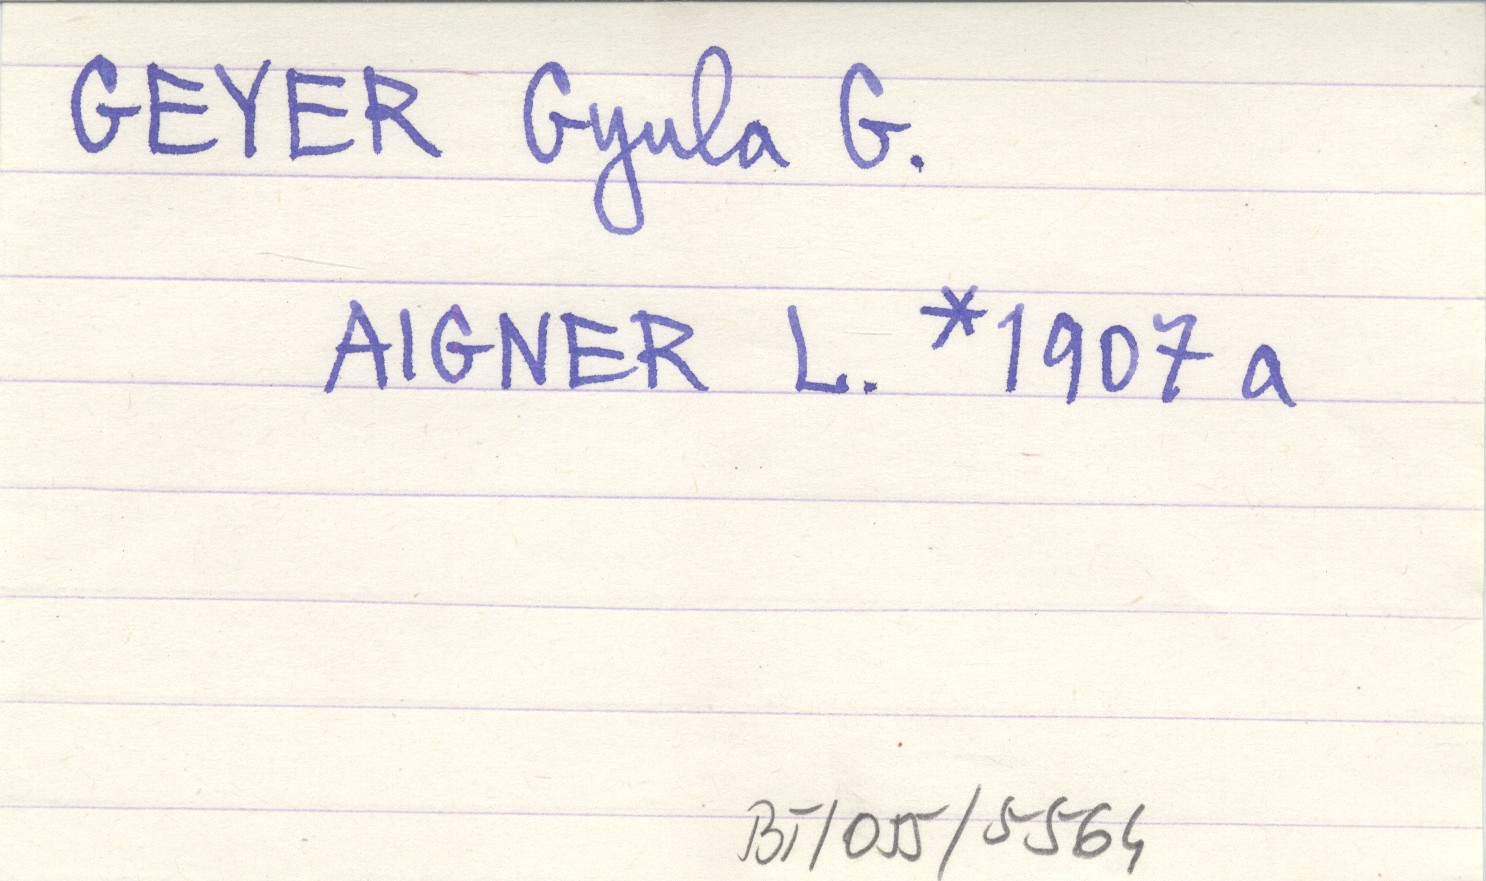 GEYER Gyula G.
AIGNER L. *1907a
BI/055/5564